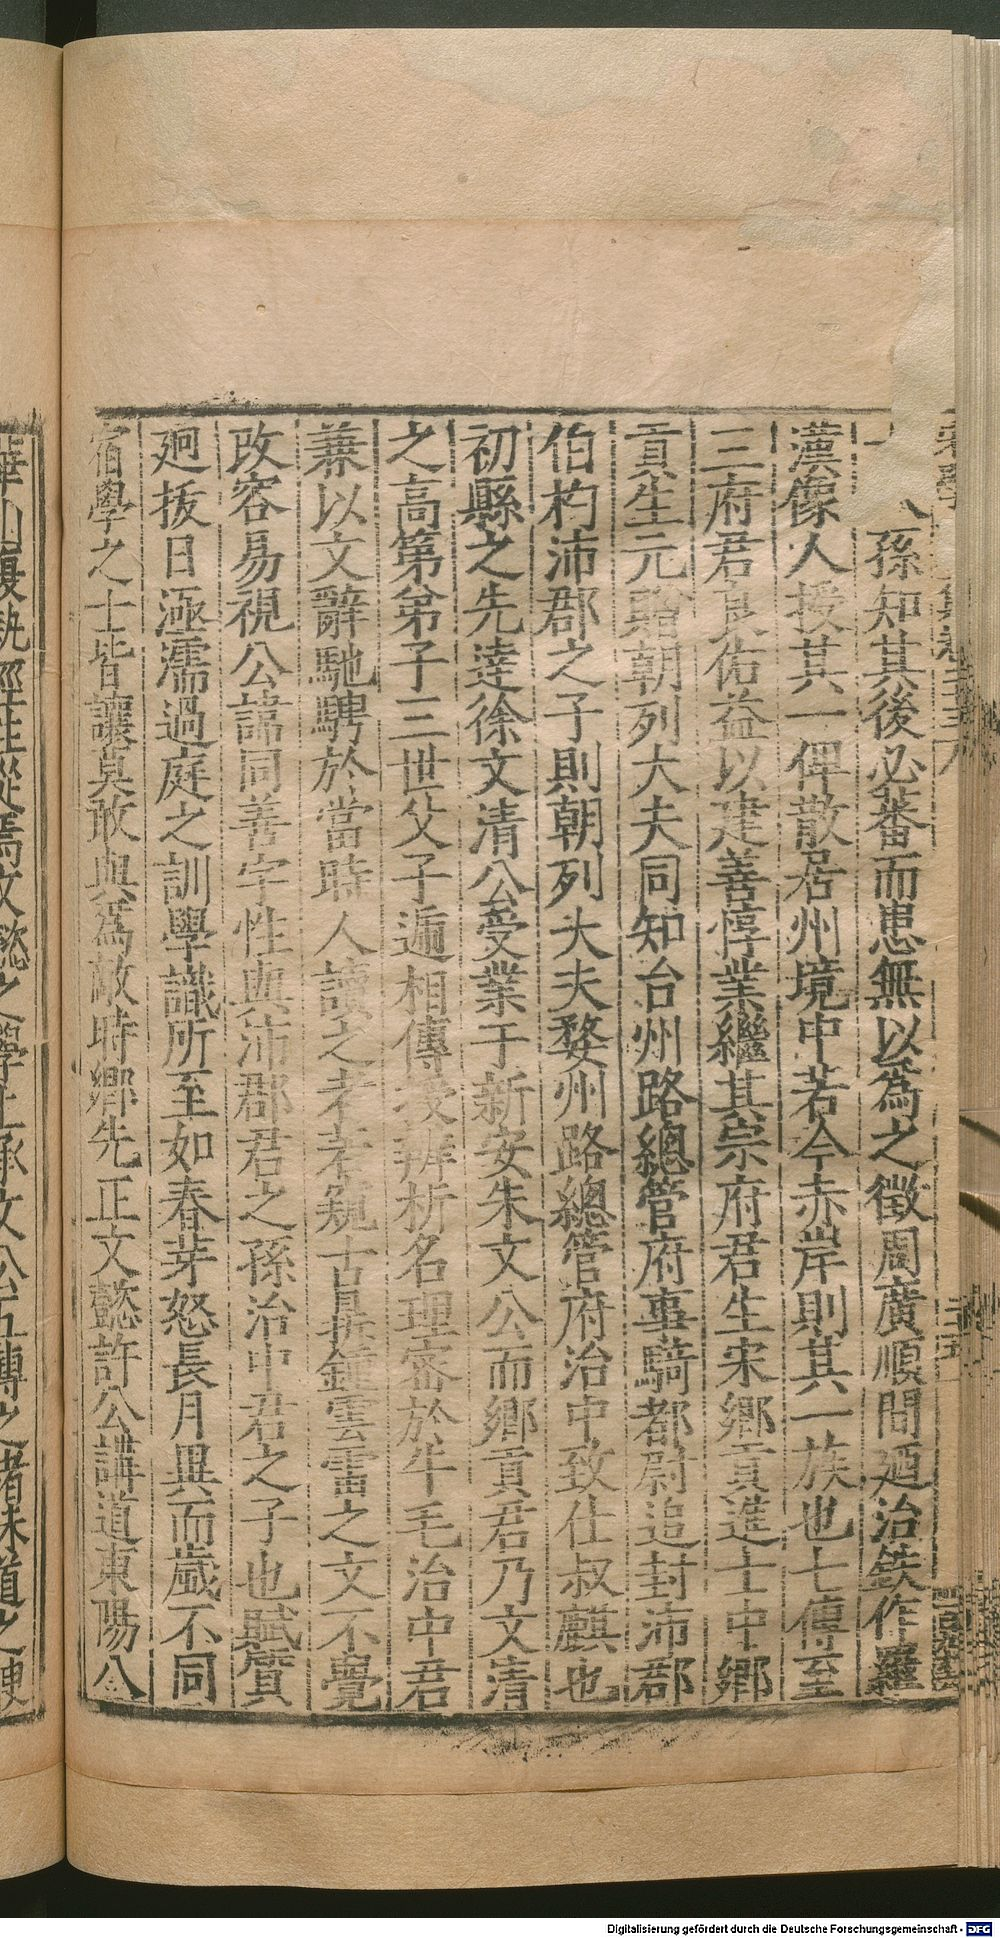 孫知其後必蕃而患無以為之徵周廣順間廼治鉄作羅
漢像人授其一俾散居州境中若今赤岸則其一族也七傳至
三府君良佑益以建善惇業繼其宗府君生宋鄉貢進士中鄉
貢生元贈朝列大夫同知台州路總管府事騎都尉追封沛郡
伯杓沛郡之子則朝列大夫婺州路總管府治中致仕叔麒也
初縣之先達徐文清公受業于新安朱文公而鄉貢君乃文清
之高第弟子三世父子逓相傳受辨析名理審於牛毛治中君
兼以文辭馳騁於當時人讀之者若窺古鼎鐘雲雷之文不覺
改容易視公諱同善字性與沛郡君之孫治中君之子也賦質
廻拔日漸濡過庭之訓學識所至如春芽怒長月異而歲不同
宿學之士皆讓莫敢與為敵時鄉先正文懿許公講道東陽八
華山復執經往從焉文懿之學上承文公五傳之緒味道之腴
Digitalisierung gefördert durch die Deutsche Forschungsgemeinschaft - DFG